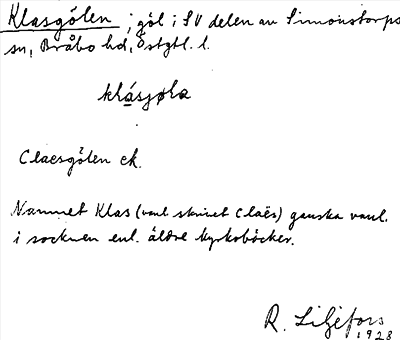 Klasgölen ; göl i SV delen av Simonstorps
sn, Bråbo hd, Östgtl. l.
klásjøla
Claesgölen ek.
Namnet Klas (vanl. skrivet Claës) ganska vanl.
i socknen enl. äldre kyrkoböcker.
R. Liljefors
1928